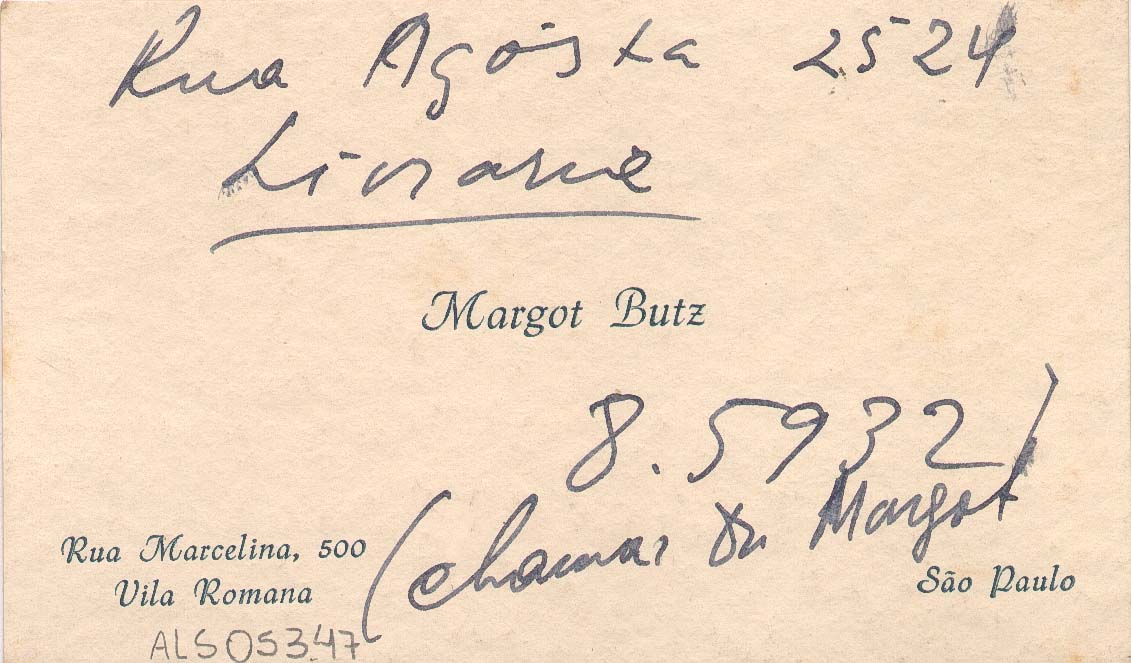 Rua Agosta 2524
Livrarie
Margot Butz
8.5932
(chamar Da Margot)
Rua Marcelina, 500
Vila Romana
São Paulo
ALS05347